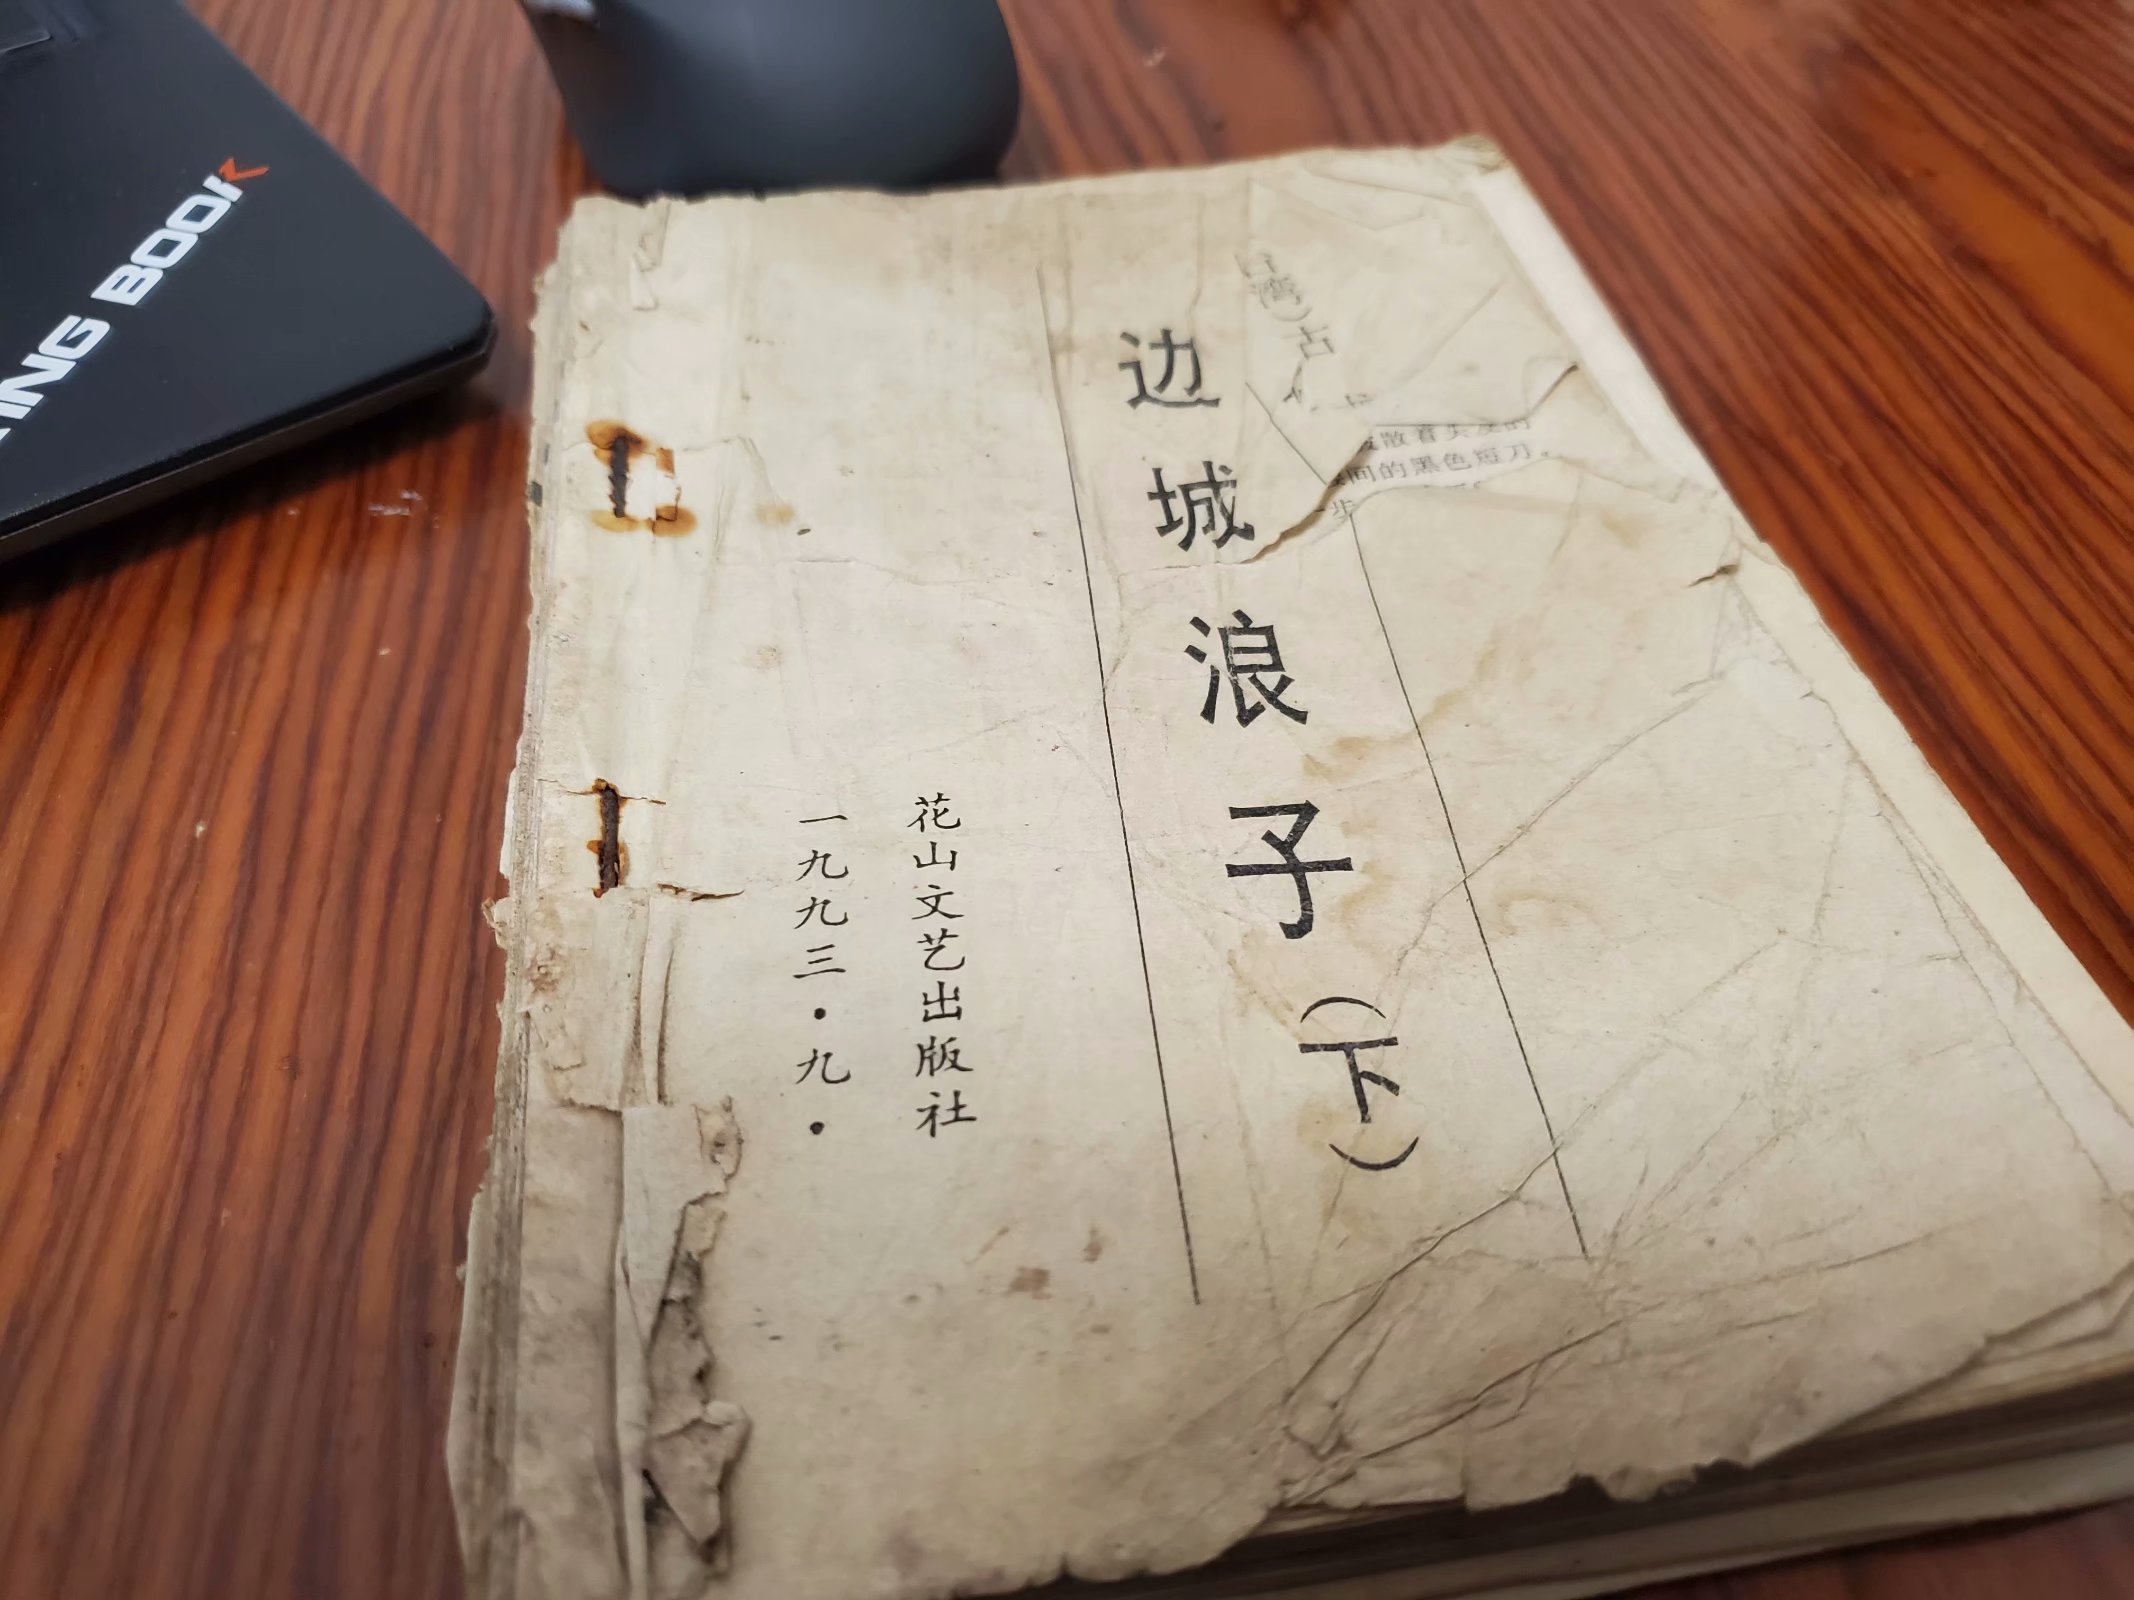 (台湾)古
边城浪子(下)
花山文艺出版社
一九九三·九·
散着头发的
间的黑色短刀。
步
ING BOOK